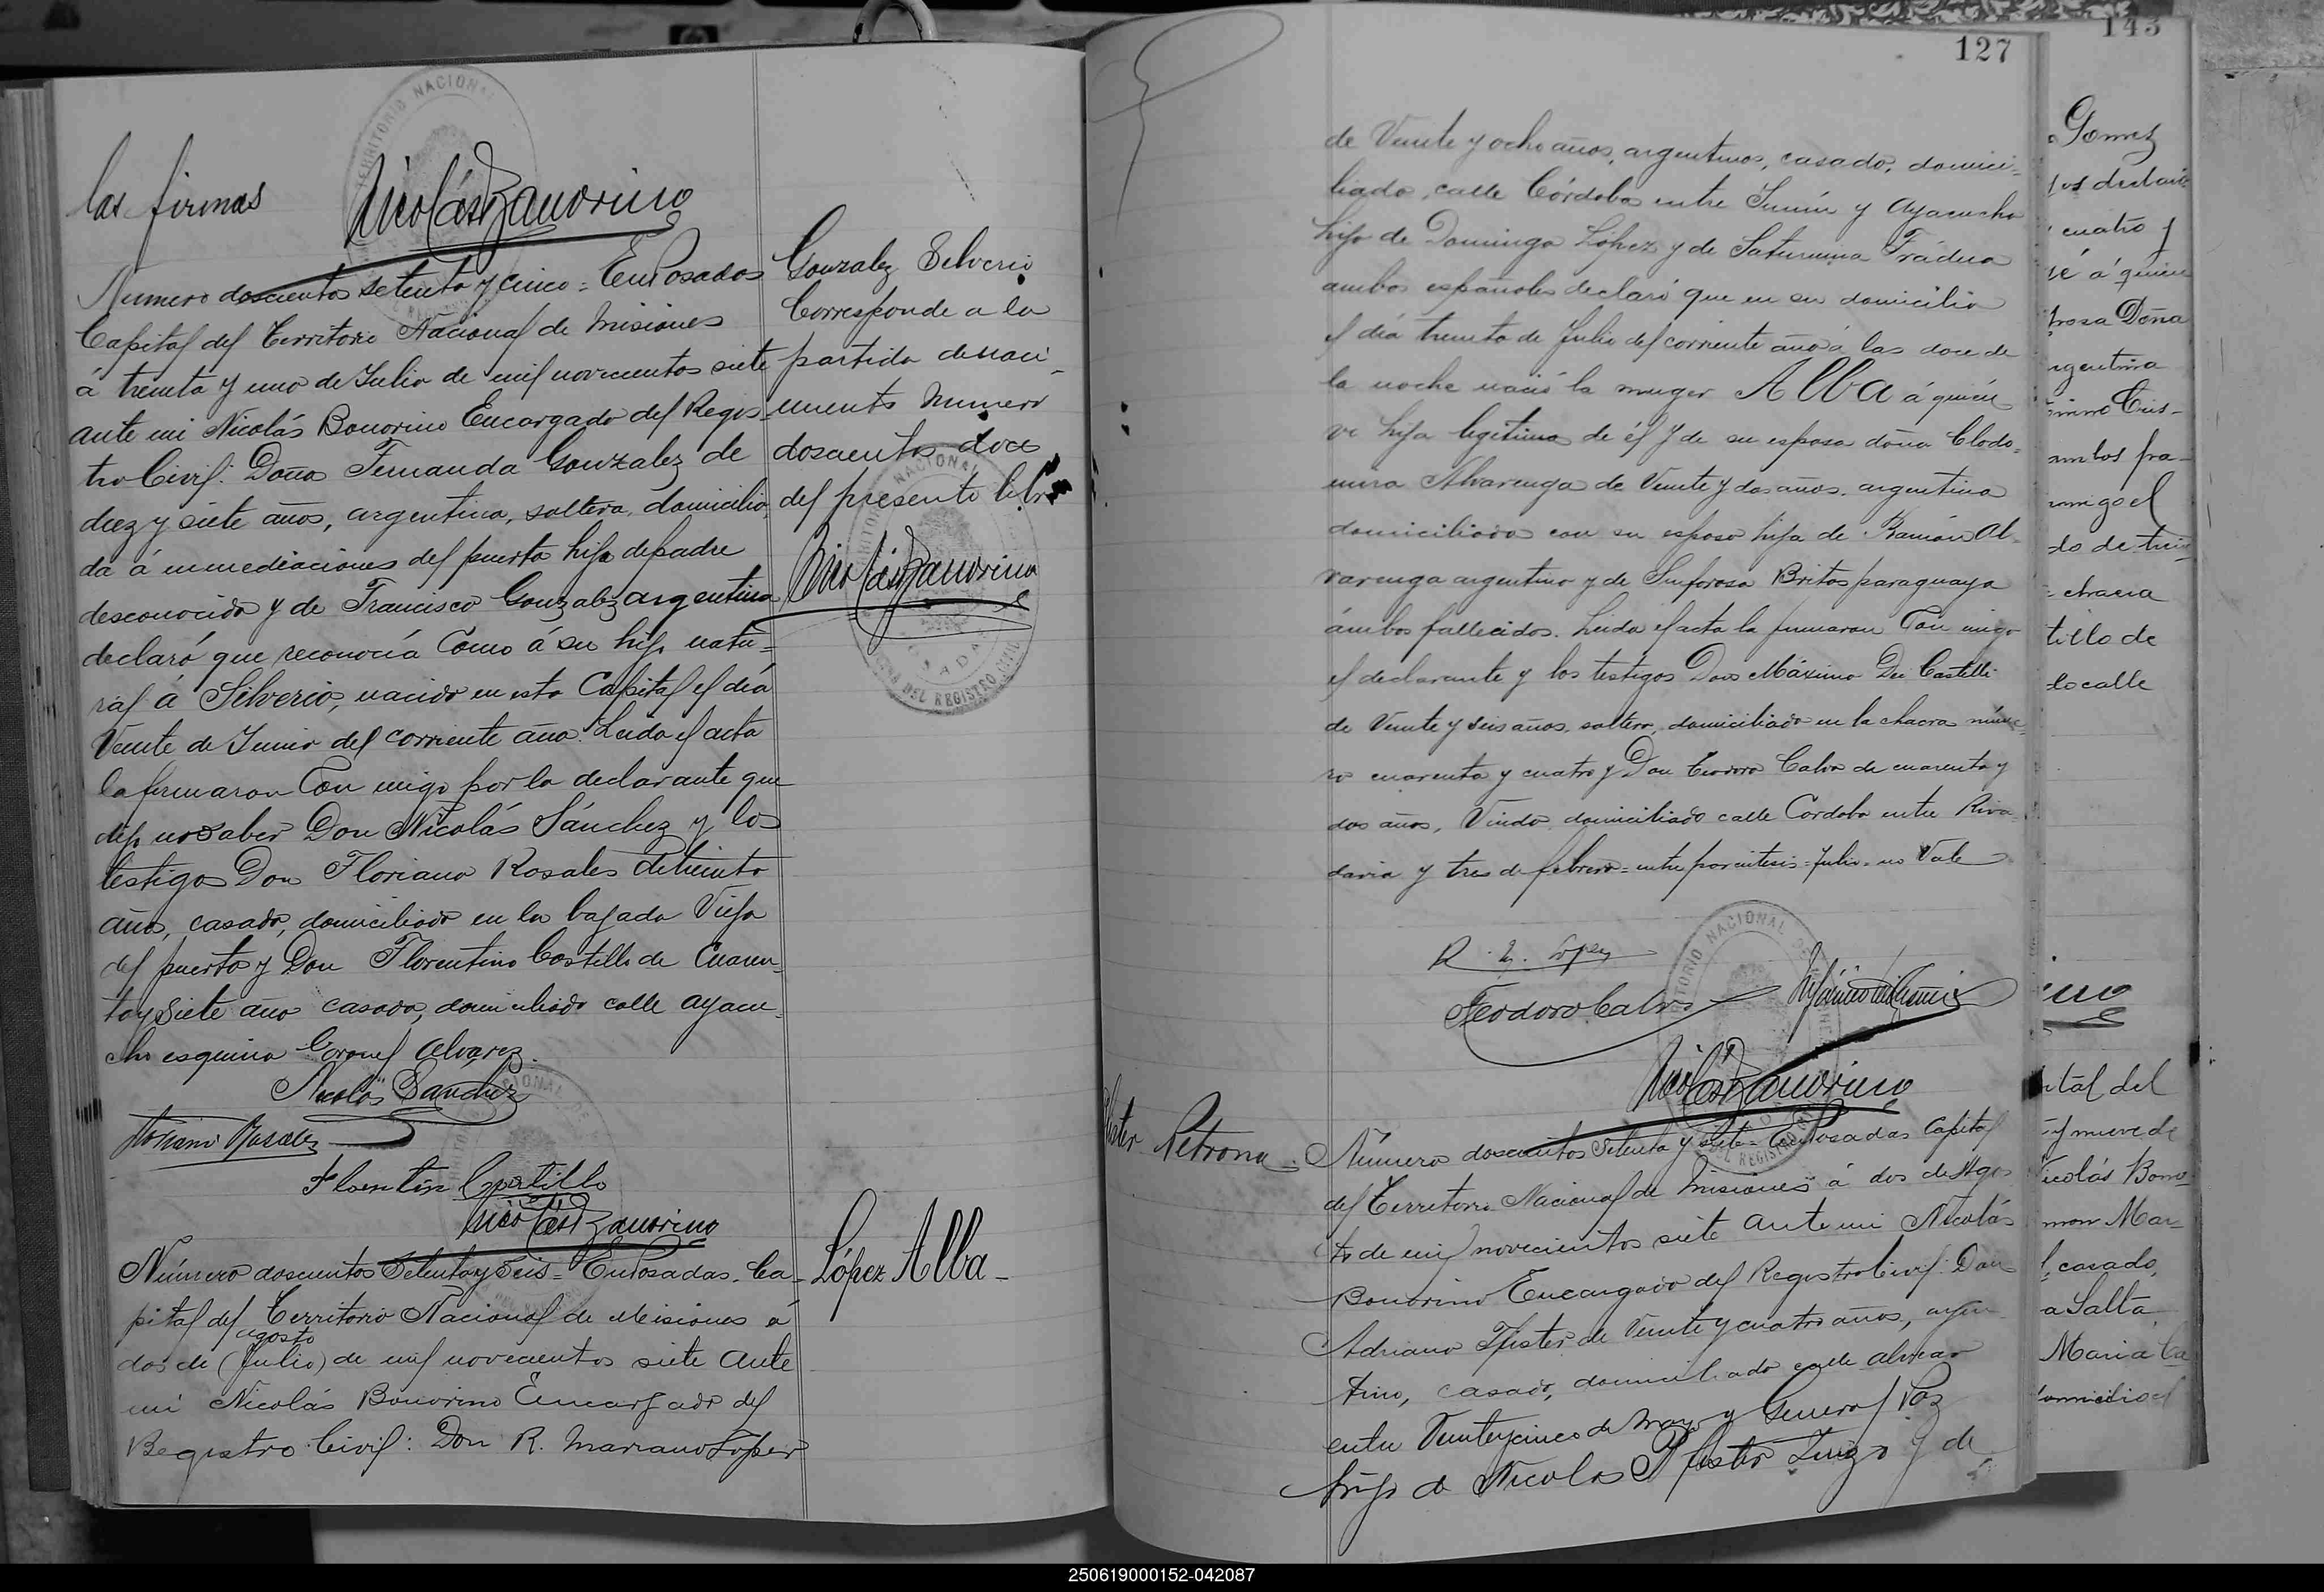 las firmas
Nicolás Bonorino
Numero doscientos setenta y cinco = En Posadas
Capital del Territorio Nacional de Misiones
á treinta y uno de Julio de mil novecientos siete
ante mi Nicolás Bonorino Encargado del Regis-
tro Civil: Doña Fernanda Gonzalez de
diez y siete años, argentina, soltera, domicilia-
da á inmediaciones del puerto hija de padre
desconocido y de Francisca Gonzalez argentina
declaró que reconocía como á su hijo natu=
ral á Silverio, nacido en esta Capital el día
Veinte de Junio del corriente año. Leida el acta
la firmaron con migo por la declarante que
dijo no saber Don Nicolás Sánchez y los
testigos Don Floriano Rosales de treinta
años, casado, domiciliado en la bajada Vieja
del puerto y Don Florentino Castillo de Cuaren-
ta y siete años casado, domiciliado calle Ayacu-
cho esquina Coronel Alvarez.
Nicolás Sanchez
Floriano Rosales
Florentin Castillo
Nicolás Bonorino
Gonzalez Silverio
Corresponde a la
partida de naci-
miento Numero
doscientos doce
del presente libro
Nicolás Bonorino
Número doscientos setenta y seis = En Posadas. Ca-
pital del Territorio Nacional de Misiones á
agosto
dos de (Julio) de mil novecientos siete ante
mi Nicolás Bonorino Encargado del
Registro Civil: Don R. Mariano López
López Alba -
127
de Veinte y ocho años, argentino, casado, domici=
liado, calle Córdoba entre Junín y Ayacucho
hijo de Domingo López y de Saturnina
ambos españoles declaró que en su domicilio
el día treinta de Julio del corriente año á las doce de
la noche nació la muger Alba á quién
vi hija legitima de él y de su esposa doña Clodo=
mira Alvarenga de Veinte y dos años, argentina
domiciliada con su esposo hija de Ramón Al-
varenga argentino y de Sinforosa Britos paraguaya
ámbos fallecidos. Leida el acta la firmaron con migo
el declarante y los testigos Don Máximo De Castelli
de Veinte y seis años, soltero, domiciliado en la chacra núme-
ro cuarenta y cuatro y Don Teodoro Calvo de cuarenta y
dos años, Viudo, domiciliado calle Córdoba entre Riva-
davia y tres de febrero = entre paréntesis = Julio = no Vale
R. M. Lopez
Teodoro Calvo
Nicolás Bonorino
Pfister Petrona =
Número doscientos setenta y siete = En Posadas Capital
del Territorio Nacional de Misiones á dos de Agos-
to de mil novecientos siete ante mi Nicolás
Bonorino Encargado del Registro Civil: Don
Adriano Pfister de Veinte y cuatro años, argen-
tino, casado, domiciliado calle Alvear
entre Veinticinco de Mayo y General Paz
hijo de Nicolas Pfister Suizo y de
143
Gomez
cuatro y
sé á quien
Doña
argentina
migo el
chacra
calle
Capital del
y nueve de
Nicolás Bono-
casado,
a Salta
Maria Ca
250619000152-042087